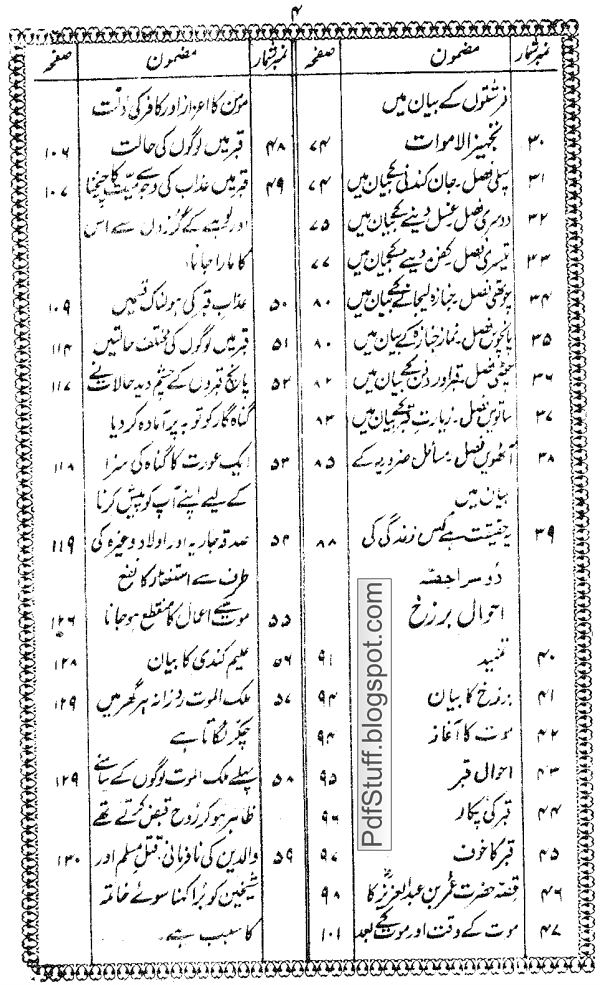 ۴
نمبر شمار مضمون صفحہ
فرشتوں کے بیان میں
۳۰ تجہیز الاموات ۷۴
۳۱ پہلی فصل۔ جان کندنی کے بیان میں ۷۴
۳۲ دوسری فصل غسل دینے کے بیان میں ۷۵
۳۳ تیسری فصل کفن دینے کے بیان میں ۷۷
۳۴ چوتھی فصل۔ جنازہ لیجانے کے بیان میں ۸۰
۳۵ پانچویں فصل۔ نماز جنازہ کے بیان میں ۸۰
۳۶ چھٹی فصل۔ قبر اور دفن کے بیان میں ۸۲
۳۷ ساتویں فصل۔ زیارت قبر کے بیان میں ۸۳
۳۸ آٹھویں فصل۔ مسائل ضروریہ کے ۸۵
بیان میں
۳۹ یہ حقیقت ہے کس زندگی کی ۸۸
دوسرا حصہ
احوال برزخ
۴۰ تمہید ۹۱
۴۱ برزخ کا بیان ۹۴
۴۲ موت کا آغاز ۹۴
۴۳ احوال قبر ۹۵
۴۴ قبر کی پکار ۹۶
۴۵ قبر کا خوف ۹۷
۴۶ قصہ حضرت عمر بن عبدالعزیزؒ کا ۹۸
۴۷ موت کے وقت اور موت کے بعد ۱۰۱
نمبر شمار مضمون صفحہ
مومن کا اعزاز اور کافر کی ذلت
۴۸ قبر میں لوگوں کی حالت ۱۰۶
۴۹ قبر میں عذاب کی وجہ سے میت کا چیخنا ۱۰۷
اور لوہے کے گرزوں سے اس
کا مارا جانا۔
۵۰ عذاب قبر کی ہولناکئیں ۱۰۹
۵۱ قبر میں لوگوں کی مختلف حالتیں ۱۱۴
۵۲ پانچ قبروں کے چشم دید حالات نے ۱۱۷
گناہ گار کو توبہ پر آمادہ کر دیا
۵۳ ایک عورت کا گناہ کی سزا ۱۱۸
کے لیے اپنے آپ کو پیش کرنا
۵۴ صدقہ جاریہ اور اولاد وغیرہ کی ۱۱۹
طرف سے استغفار کا نفع
۵۵ موت سے اعمال کا منقطع ہو جانا ۱۲۶
۵۶ علیم کندی کا بیان ۱۲۸
۵۷ ملک الموت روزانہ ہر گھر میں ۱۲۹
چکر لگاتا ہے
۵۸ پہلے ملک الموت لوگوں کے سامنے ۱۲۹
ظاہر ہو کر روح قبض کرتے تھے
۵۹ والدین کی نافرمانی، قتل مسلم اور ۱۳۰
شیخین کو برا کہنا سوئے خاتمہ
کا سبب ہے۔
PdfStuff.blogspot.com